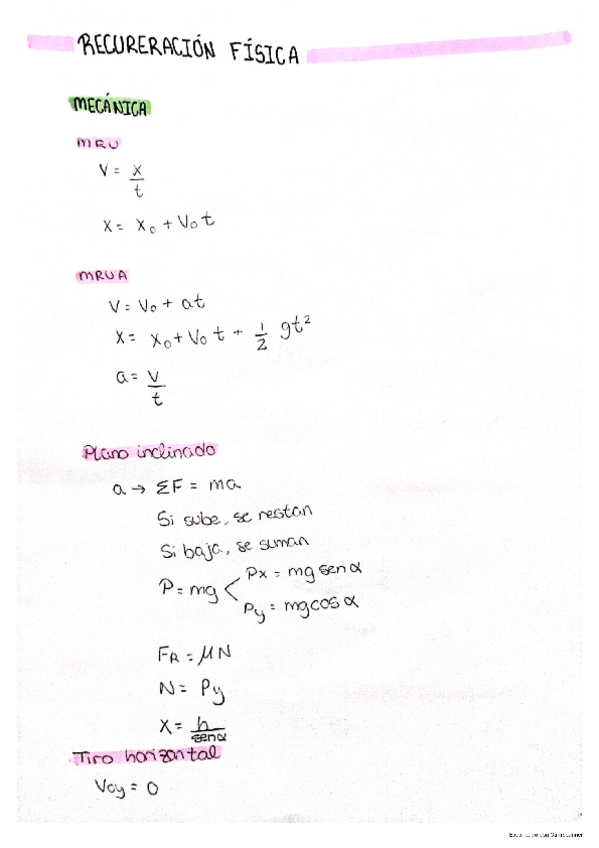 RECURERACIÓN FÍSICA
MECÁNICA
MRU
V = x/t
x = x₀ + V₀ t
MRUA
V = V₀ + at
x = x₀ + V₀ t + 1/2 gt²
a = V/t
Plano inclinado
a → ΣF = ma
Si sube, se restan
Si baja, se suman
P = mg < Px = mg sen α
Py = mg cos α
FR = μN
N = Py
x = h/sen α
Tiro horizontal
Voy = 0